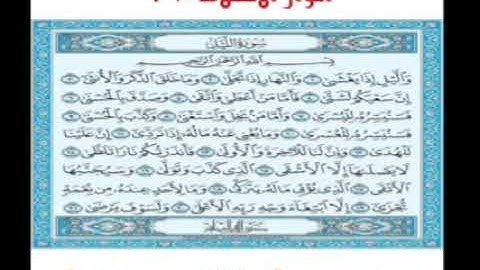 سُورَةُ اللَّيْلِ
بِسْمِ اللَّهِ الرَّحْمَٰنِ الرَّحِيمِ
وَالَّيْلِ إِذَا يَغْشَىٰ وَالنَّهَارِ إِذَا تَجَلَّىٰ وَمَا خَلَقَ الذَّكَرَ وَالْأُنثَىٰ
إِنَّ سَعْيَكُمْ لَشَتَّىٰ فَأَمَّا مَنْ أَعْطَىٰ وَاتَّقَىٰ وَصَدَّقَ بِالْحُسْنَىٰ
فَسَنُيَسِّرُهُ لِلْيُسْرَىٰ وَأَمَّا مَن بَخِلَ وَاسْتَغْنَىٰ وَكَذَّبَ بِالْحُسْنَىٰ
فَسَنُيَسِّرُهُ لِلْعُسْرَىٰ وَمَا يُغْنِي عَنْهُ مَالُهُ إِذَا تَرَدَّىٰ إِنَّ عَلَيْنَا
لَلْهُدَىٰ وَإِنَّ لَنَا لَلْآخِرَةَ وَالْأُولَىٰ فَأَنذَرْتُكُمْ نَارًا تَلَظَّىٰ
لَا يَصْلَاهَا إِلَّا الْأَشْقَى الَّذِي كَذَّبَ وَتَوَلَّىٰ وَسَيُجَنَّبُهَا
الْأَتْقَى الَّذِي يُؤْتِي مَالَهُ يَتَزَكَّىٰ وَمَا لِأَحَدٍ عِندَهُ مِن نِّعْمَةٍ
تُجْزَىٰ إِلَّا ابْتِغَاءَ وَجْهِ رَبِّهِ الْأَعْلَىٰ وَلَسَوْفَ يَرْضَىٰ